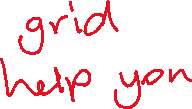 grid
help you